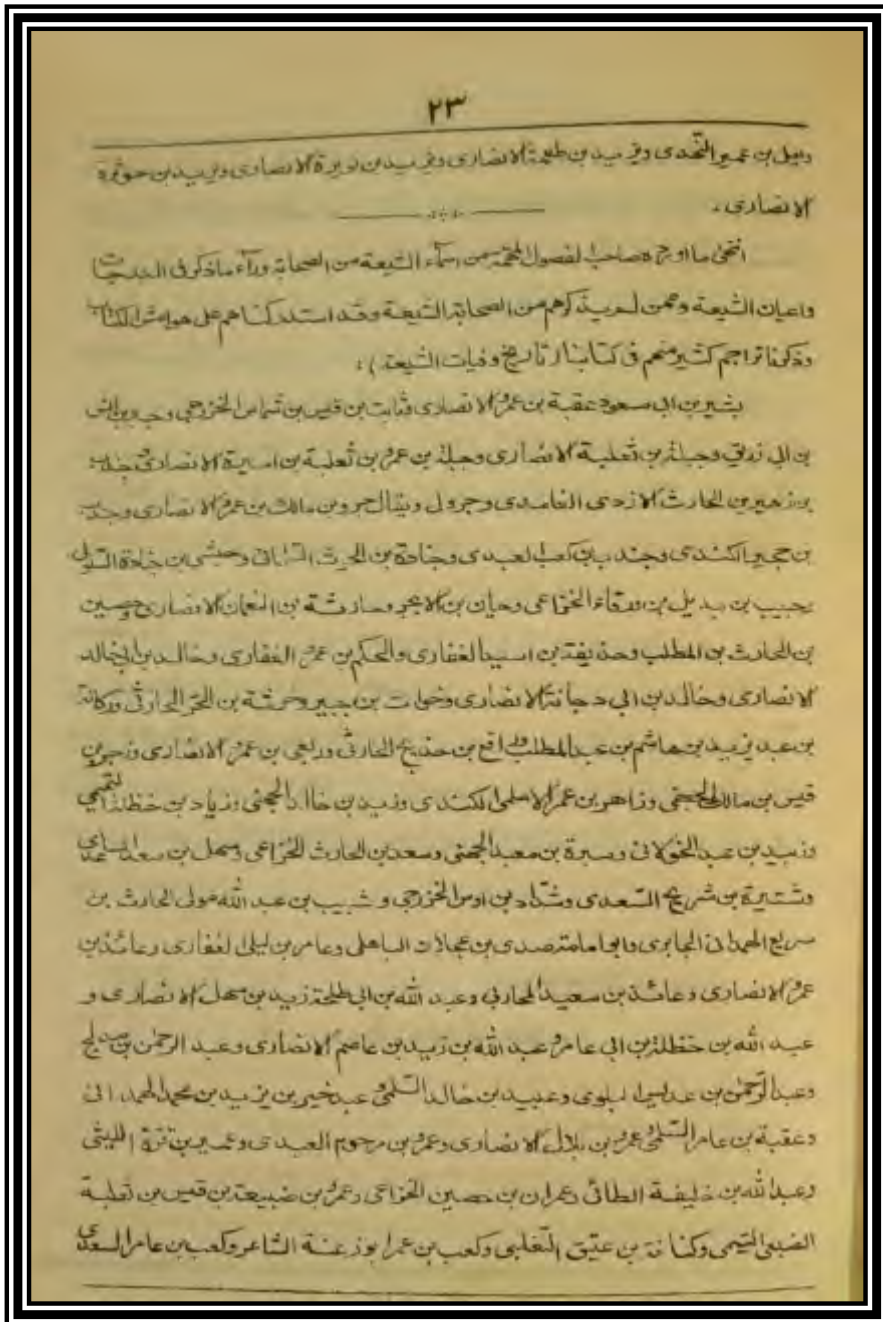 ٢٣
بن عمير النهدى ويزيد بن طعمة الانصارى ويزيد بن نويرة الانصارى ويزيد بن حوثرة
الانصارى .
انتهى ما اورده صاحب الفصول المهمة من اسمآء الشيعة من الصحابة ورآء ما ذكر فى الدرجات
واعيان الشيعة وممن لم يذكرهم من الصحابة الشيعة وقد استدركناهم على هوامش الكتاب
وذكرنا تراجم كثير منهم فى كتابنا ( تاريخ وفيات الشيعة ) :
بشير بن ابى مسعود عقبة بن عمرو الانصارى وثابت بن قيس بن شماس الخزرجى
بن ابى وجبلة بن ثعلبة الانصارى وجبلة بن عمرو بن ثعلبة بن اسيرة الانصارى وجندب
بن زهير بن الحارث الازدى الغامدى وجرول ويقال جرو بن مالك بن عمرو الانصارى
بن الكندى وجندب بن كعب العبدى وجنادة بن الحرث وحبشى بن جنادة السلولى
بن بديل بن ورقاء الخزاعى وحيان بن الابجر وحارثة بن النعمان الانصارى وحصين
بن الحارث بن المطلب وحذيفة بن اسيد الغفارى والحكم بن عمرو الغفارى وخالد بن ابى خالد
الانصارى وخالد بن ابى دجانة الانصارى وخوات بن جبير وخرشة بن الحر الحارثى وركانة
بن عبد يزيد بن هاشم بن عبد المطلب ورافع بن خديج الحارثى وربعى بن عمرو الانصارى
قيس بن مالك الجعفى وزاهر بن عمرو الاسلمى الكندى وزيد بن خالد الجهنى وزياد بن حنظلة التميمى
وزبيد بن عبد الخولانى وسبرة بن معبد الجهنى وسعد بن الحارث الخزاعى وسهل بن سعد الساعدى
بن السعدى وشداد بن اوس الخزرجى وشبيب بن عبد الله مولى الحارث بن
سريع الهمدانى الجابرى وابو امامة صدى بن عجلان الباهلى وعامر بن ليلى الغفارى وعائذ بن
عمرو الانصارى وعائذ بن سعيد المحاربى وعبد الله بن ابى طلحة زيد بن سهل الانصارى و
عبد الله بن حنظلة بن ابى عامر وعبد الله بن زيد بن عاصم الانصارى وعبد الرحمن بن
وعبد الرحمن بن عديس البلوى وعبيد بن خالد السلمى وعبد خير بن يزيد بن محمد الهمدانى
وعقبة بن عامر السلمى وعمرو بن بلال الانصارى وعمرو بن مرحوم العبدى وعمير بن قرة الليثى
وعبد الله بن خليفة الطائى وعمران بن حصين الخزاعى وعمرو بن ضبيعة بن قيس بن ثعلبة
الضبعى التيمى وكنانة بن عتيق التغلبى وكعب بن عمر ابو زعنة الشاعر وكعب بن عامر السعدى